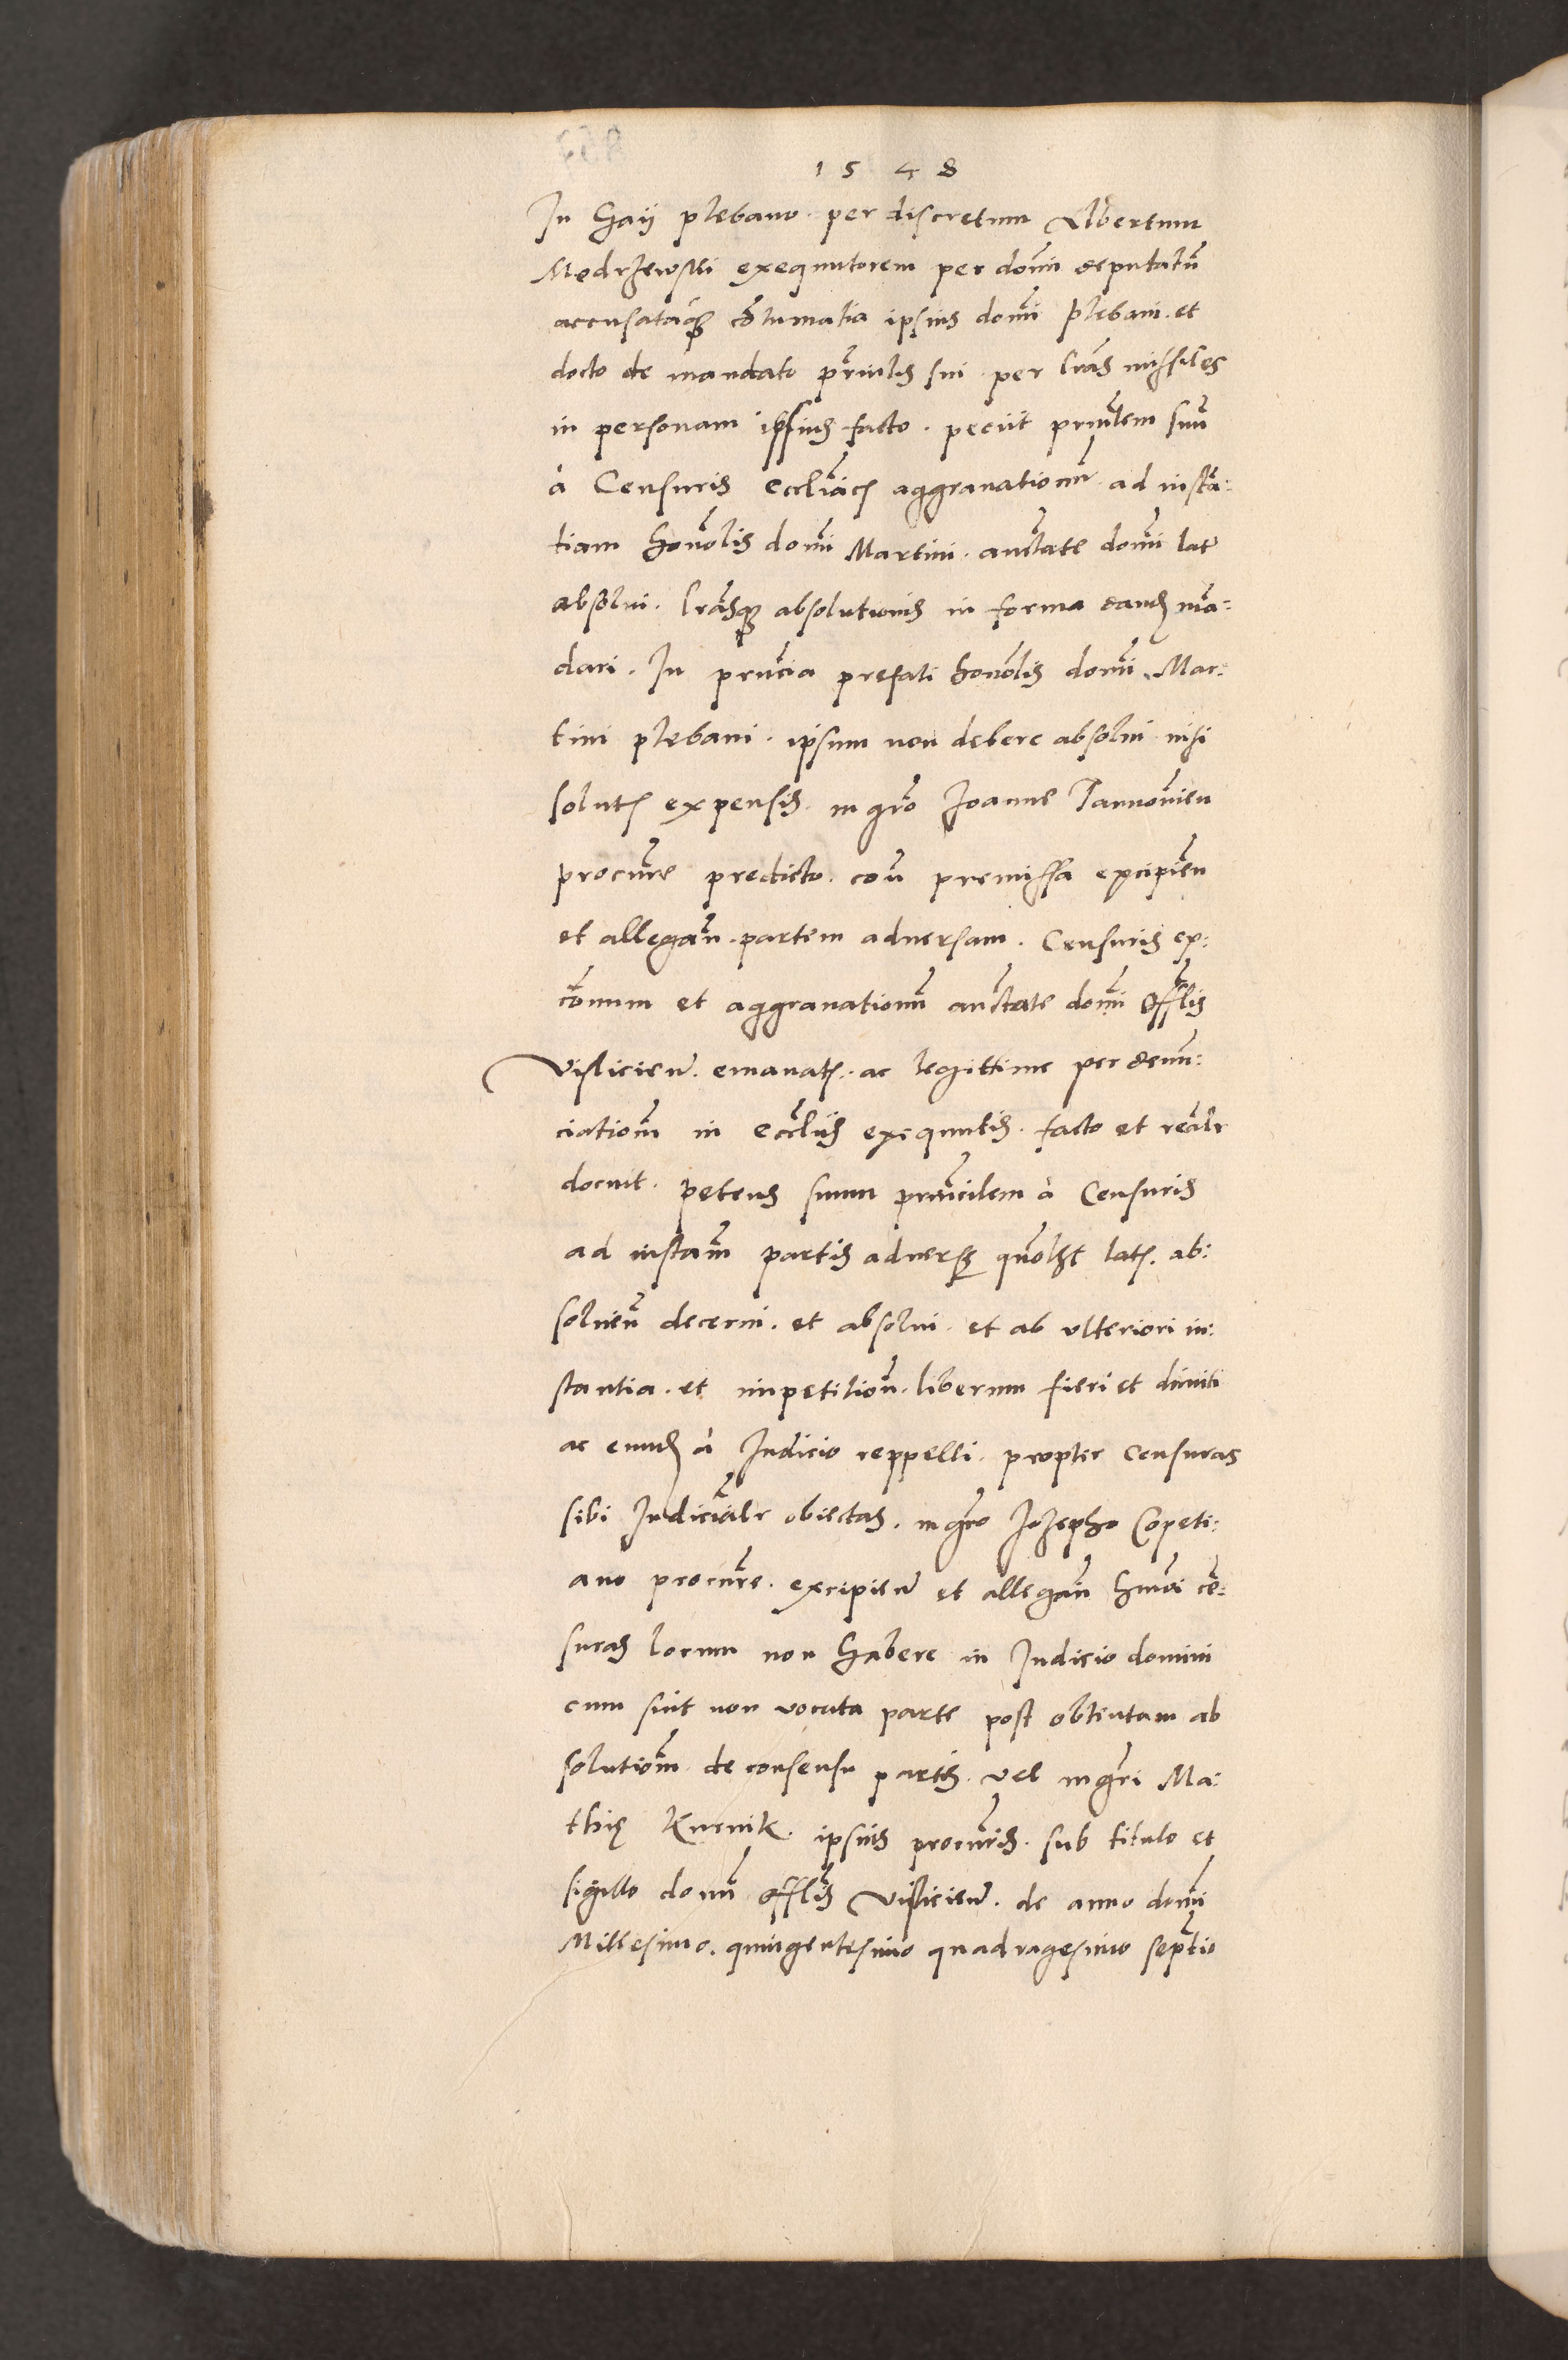 1548
In Gaÿ plebano. per discretum Albertum
Modrzewski exequutorem per domi deputatū
accusataq; cōtumatia ipsius domi plebani. et
docto de mandato prīnlis sui. per lrās missiles
in personam ipsius facto. peciit prīnlem suū
à Censuris eccliācis aggravationū ad instā:
tiam honōlis domi Martini. auctāte domi lat
absolui. lrāsq; absolutionis in forma eand mā:
dari. In prncia prefati honōlis domi Mar:
tini plebani. ipsum non debere absolui nisi
solut expensis. mgro Joanne Tarnovien
procurē predicto. cōn premissa excipien
et allegan. partem aduersam. Censuris ex:
cōmum et aggravationū auctāte domi offlis
Visliciēn. emanat. ac legittime per denū:
ciationē in eccliis exequutis. facto et realr
docuit. petens suum princilem à Censuris
ad instam partis aduerse quōlzt lat. ab:
soluen decerni. et absolui et ab vlteriori in:
stantia. et impetition. liberum fieri et dimitti
ac eund à Judicio reppelli. propter censuras
sibi Judicialr obiectas. mgro Jozepho Copeti:
ano procurē. excipien et allegan hmōi cē:
suras locum non habere in Judicio domini
cum sint non vocata parte post obtentam ab
solutionē de consensu partis. vel mgri Ma:
thię Kucnik. ipsius procuris. sub titulo et
sigillo domi offlis Visliciēn. de anno domi
Millesimo. quingentesimo quadragesimo septio